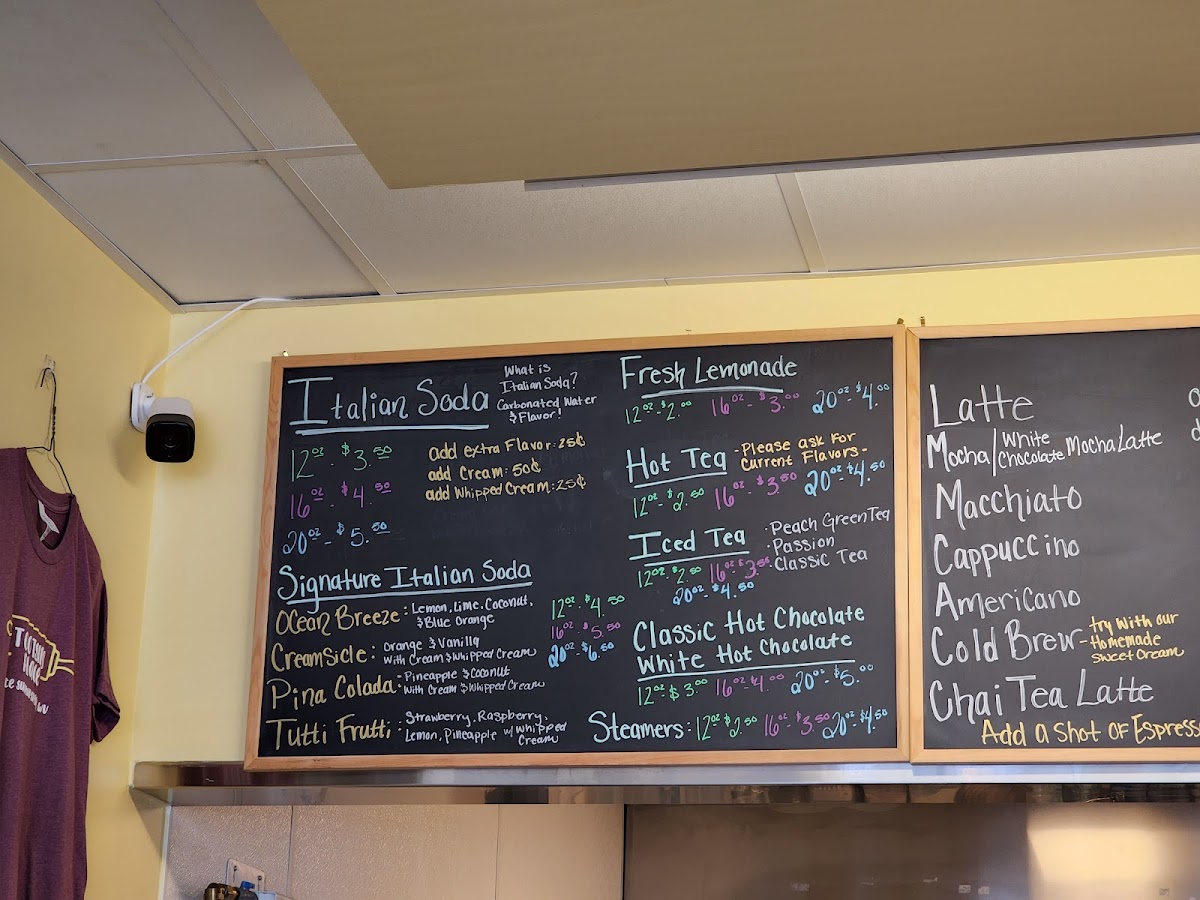 Italian Soda
What is
Italian Soda?
Carbonated Water
& Flavor!
12oz - $3.50
16oz - $4.50
20oz - $5.50
add extra Flavor: 25¢
add Cream: 50¢
add Whipped Cream: 25¢
Signature Italian Soda
Ocean Breeze: Lemon, Lime, Coconut,
& Blue Orange
Creamsicle: Orange & Vanilla
with Cream & Whipped Cream
Pina Colada - Pineapple & Coconut
with Cream & Whipped Cream
Tutti Frutti: Strawberry, Raspberry,
Lemon, Pineapple w/ Whipped
Cream
12oz - $4.50
16oz - $5.50
20oz - $6.50
Fresh Lemonade
12oz - $2.00 16oz - $3.00 20oz - $4.00
Hot Tea - Please ask for
Current Flavors -
12oz - $2.50 16oz - $3.50 20oz - $4.50
Iced Tea
· Peach Green Tea
· Passion
· Classic Tea
12oz - $2.50 16oz $3.50
20oz - $4.50
Classic Hot Chocolate
White Hot Chocolate
12oz $3.00 16oz - $4.00 20oz - $5.00
Steamers: 12oz $2.50 16oz - $3.50 20oz - $4.50
Latte
Mocha/White Chocolate Mocha Latte
Macchiato
Cappuccino
Americano
Cold Brew - try with our
Homemade
sweet Cream
Chai Tea Latte
Add a Shot of Espress